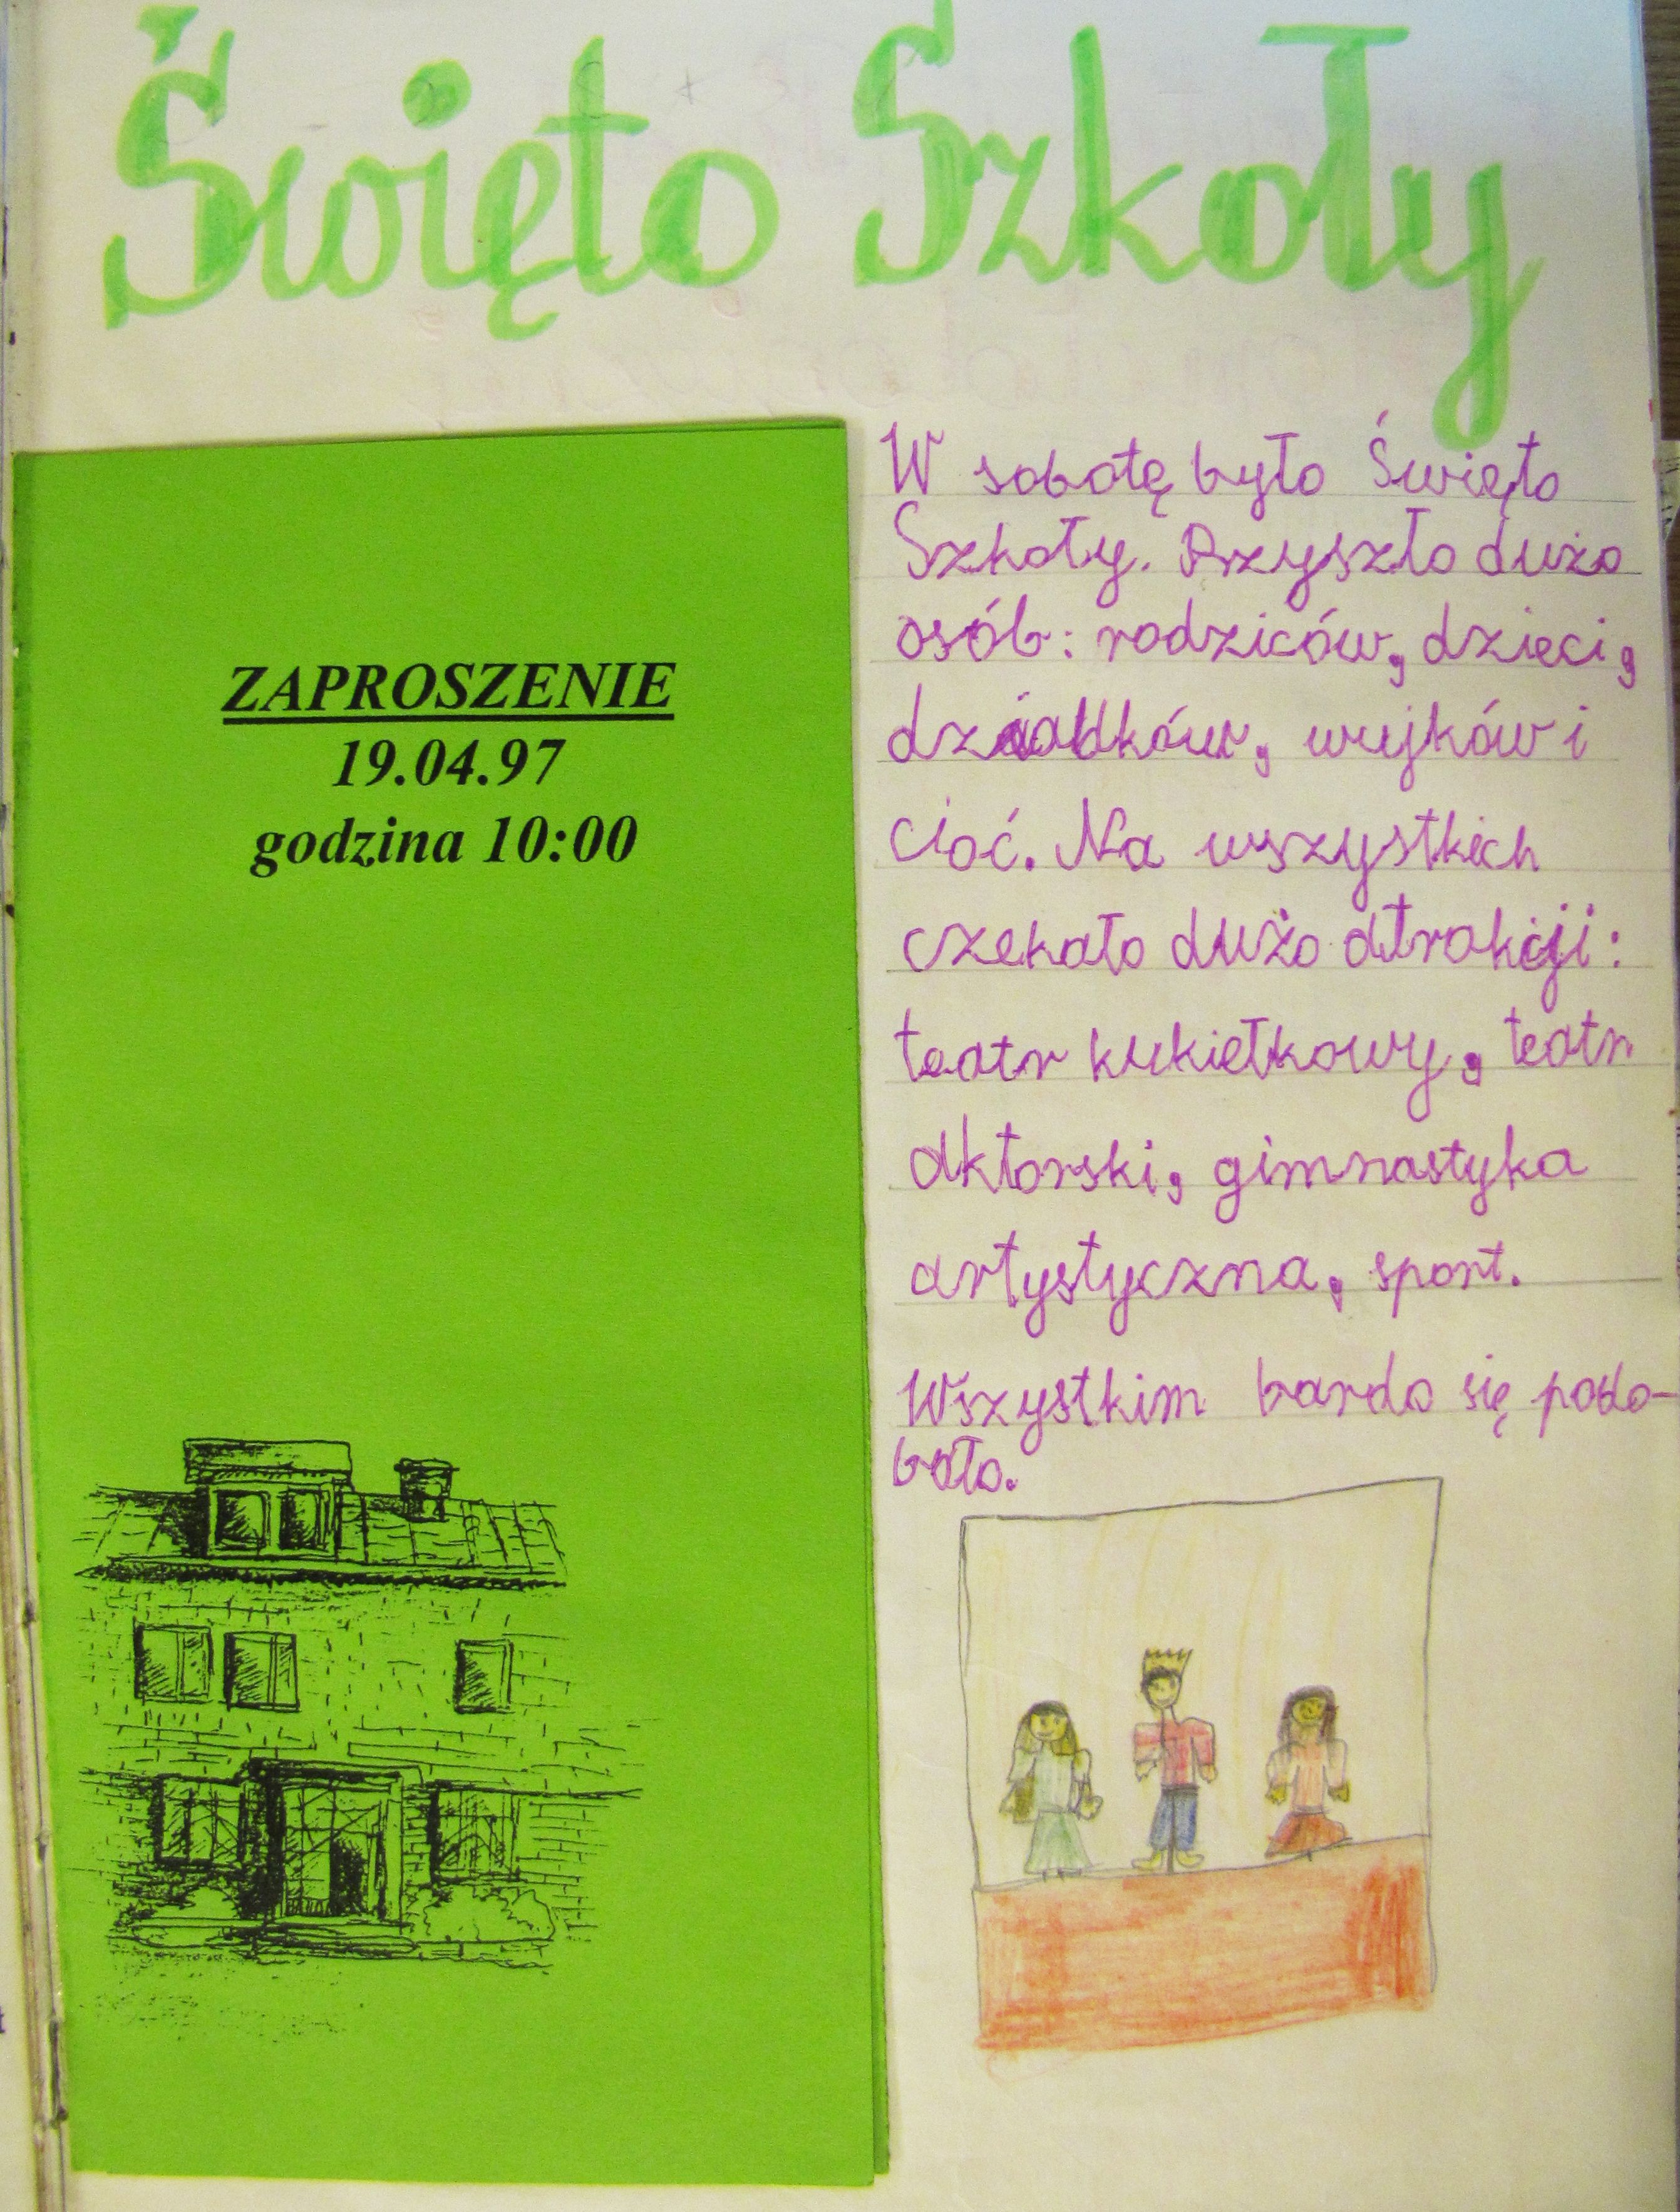 Święto Szkoły
ZAPROSZENIE
19.04.97
godzina 10:00
W sobotę było Święto
Szkoły. Przyszło dużo
osób: rodziców, dzieci,
dziadków, wujków i
cioć. Na wszystkich
czekało dużo atrakcji:
teatr kukiełkowy, teatr
aktorski, gimnastyka
artystyczna, sport.
Wszystkim bardo się podo-
bało.